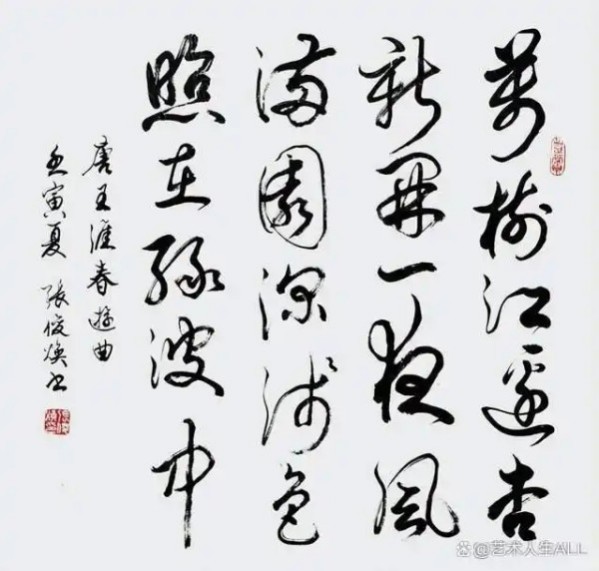 萬樹江邊杏
新開一夜風
滿園深淺色
照在綠波中
唐王涯春遊曲
壬寅夏 張俊煥书
@艺术人生ALL